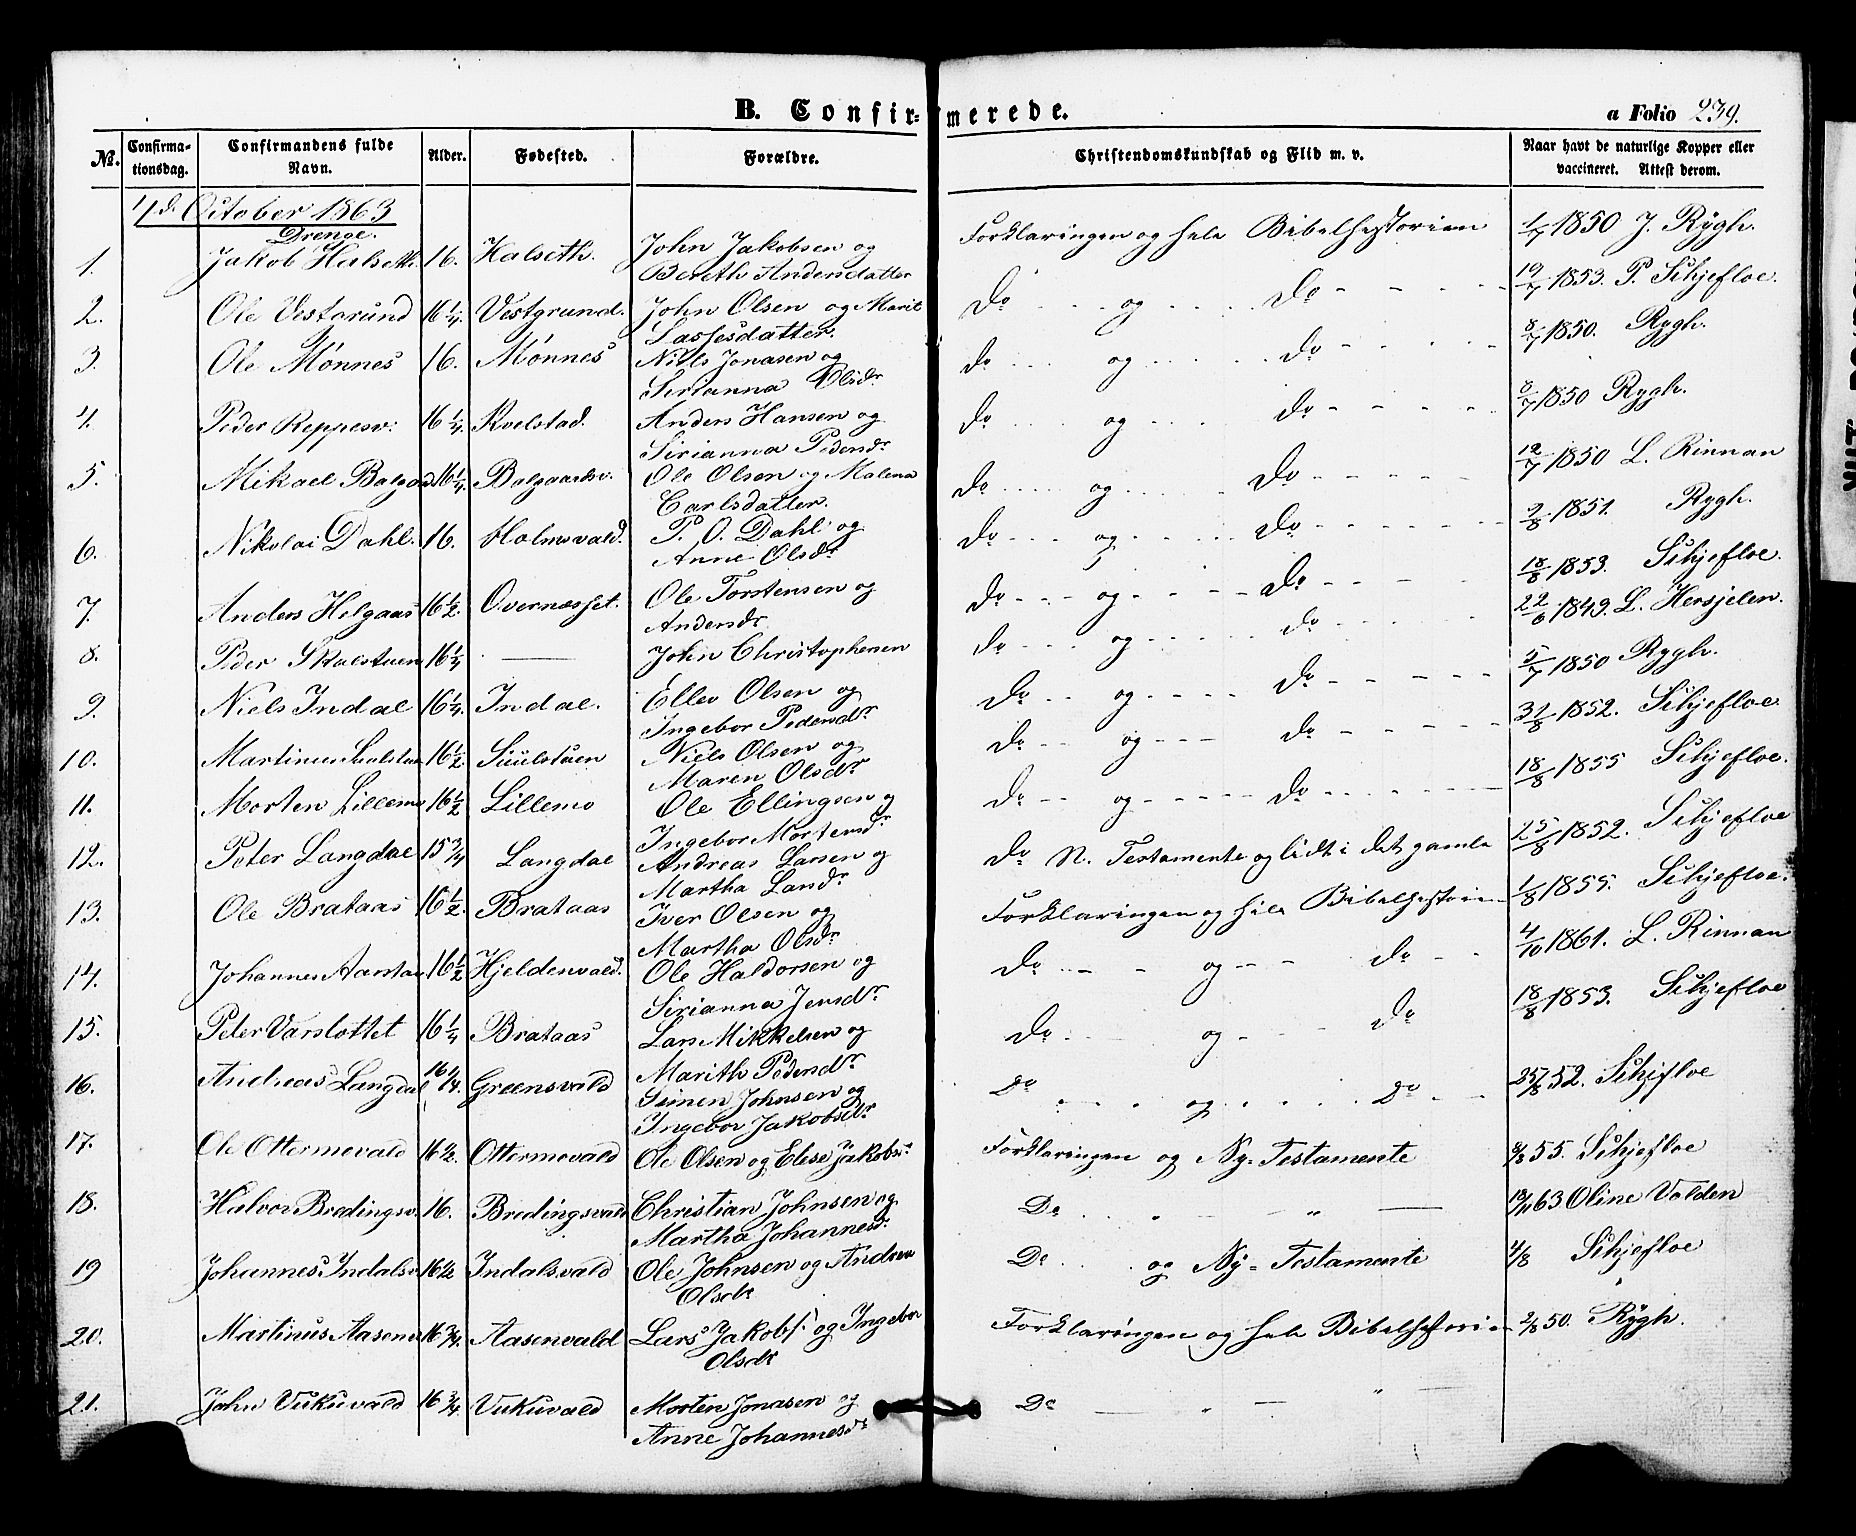 B. Confir= merede.
a Folio 239.
No. Confirmationsdag. Confirmandens fulde Navn. Alder. Fødested. Forældre. Christendomskundskab og Flid m. v. Naar havt de naturlige Kopper eller vaccineret. Attest derom.
4d. October 1863
Drenge.
1. Jakob Halseth 16. Halseth. John Jakobsen og Forklaringen og hele Bibelhistorien 1/7 1850 J. Rygh.
Bereth Andersdatter
2. Ole Vestgrund 16 1/4. Vestgrund. John Olsen og Marit Do og Do 19/7 1853. P. Sihjefloe.
Sassesdatter.
3. Ole Mønnes 16. Mønnes Niels Jonasen og do og do 8/7 1850. Rygh.
Sirianna Olsdr
4. Peder Reppesv: 16 1/4. Kvelstad. Anders Hansen og do og do 8/7 1850 Rygh.
Sirianna Pedersdr
5. Mikael Balgaa 16 1/4. Balgaardsv. Ole Olsen og Malena Do og Do 12/7 1850 L. Rinnan
Carlsdatter.
6. Nikolai Dahl. 16. Holmsvald. P. O. Dahl og Do og Do 2/8 1851. Rygh.
Anne Olsdr
7. Anders Helgaas 16 1/2. Overnæsset. Ole Torstensen og Do og Do 18/8 1853. Sihjefloe.
Andersdr
8. Peder Skalstuen 16 1/4 — John Christophersen Do og do 22/6 1849. L. Hersjelen.
9. Niels Indal 16 1/4. Indal. Ellev Olsen og Do og do 5/7 1850 Rygh.
Ingebor Pedersdr
10. Martinus 16 1/2. Suulstuen Niels Olsen og Do og do 31/8 1852. Sihjefloe
Maren Olsdr
11. Morten Lillemo 16 1/2 Lillemo Ole Ellingsen og Do og do 18/8 1855 Sihjefloe.
Ingebor Mortensdr
12. Peter Langdal 15 3/4 Langdal Andreas Larsen og Do N. Testamente og lidt i det gamle 25/8 1852. Sihjefloe
Martha Larsdr
13. Ole Brataas 16 1/2. Brataas Iver Olsen og Forklaringen og hele Bibelhistorien 1/8 1855. Sihjefloe.
Martha Olsdr
14. Johannes Aarstad 16 1/2 Hjeldenvald. Ole Haldorsen og Do og do 4/10 1861. L. Rinnan
Sirianna Jensdr
15. Peter Varslottet 16 1/4 Brataas Lars Mikkelsen og Do og do 18/8 1853. Sihjefloe
Marith Pedersdr
16. Andreas Langdal 16 1/4. Greensvald Simen Johnsen og Do og Do 25/8 52. Sihjefloe
Ingebor Jakobsdr
17. Ole Ottermovald 16 1/2. Ottermovald Ole Olsen og Elese Jakobsr Forklaringen og Ny= Testamente 9/8 55. Sihjefloe
18. Halvor Bredingsv. 16. Bredingsvald Christian Johnsen og Do " " 63 Oline Volden
Martha Johannesd.
19 Johannes Indalsv 16 1/2 Indalsvald Ole Johnsen og Andrea Do og Ny= Testamente 4/8 Sihjefloe
Olsdr
20. Martinus Aasenv 16 3/4. Aasenvald Lars Jakobs: og Ingebor Forklaringen og hele Bibelhistorien 2/8 50. Rygh.
Olsdr
21. John Vukuvald 16 3/4. Vukuvald Morten Jonasen og Do " "
Anne Johannesdr